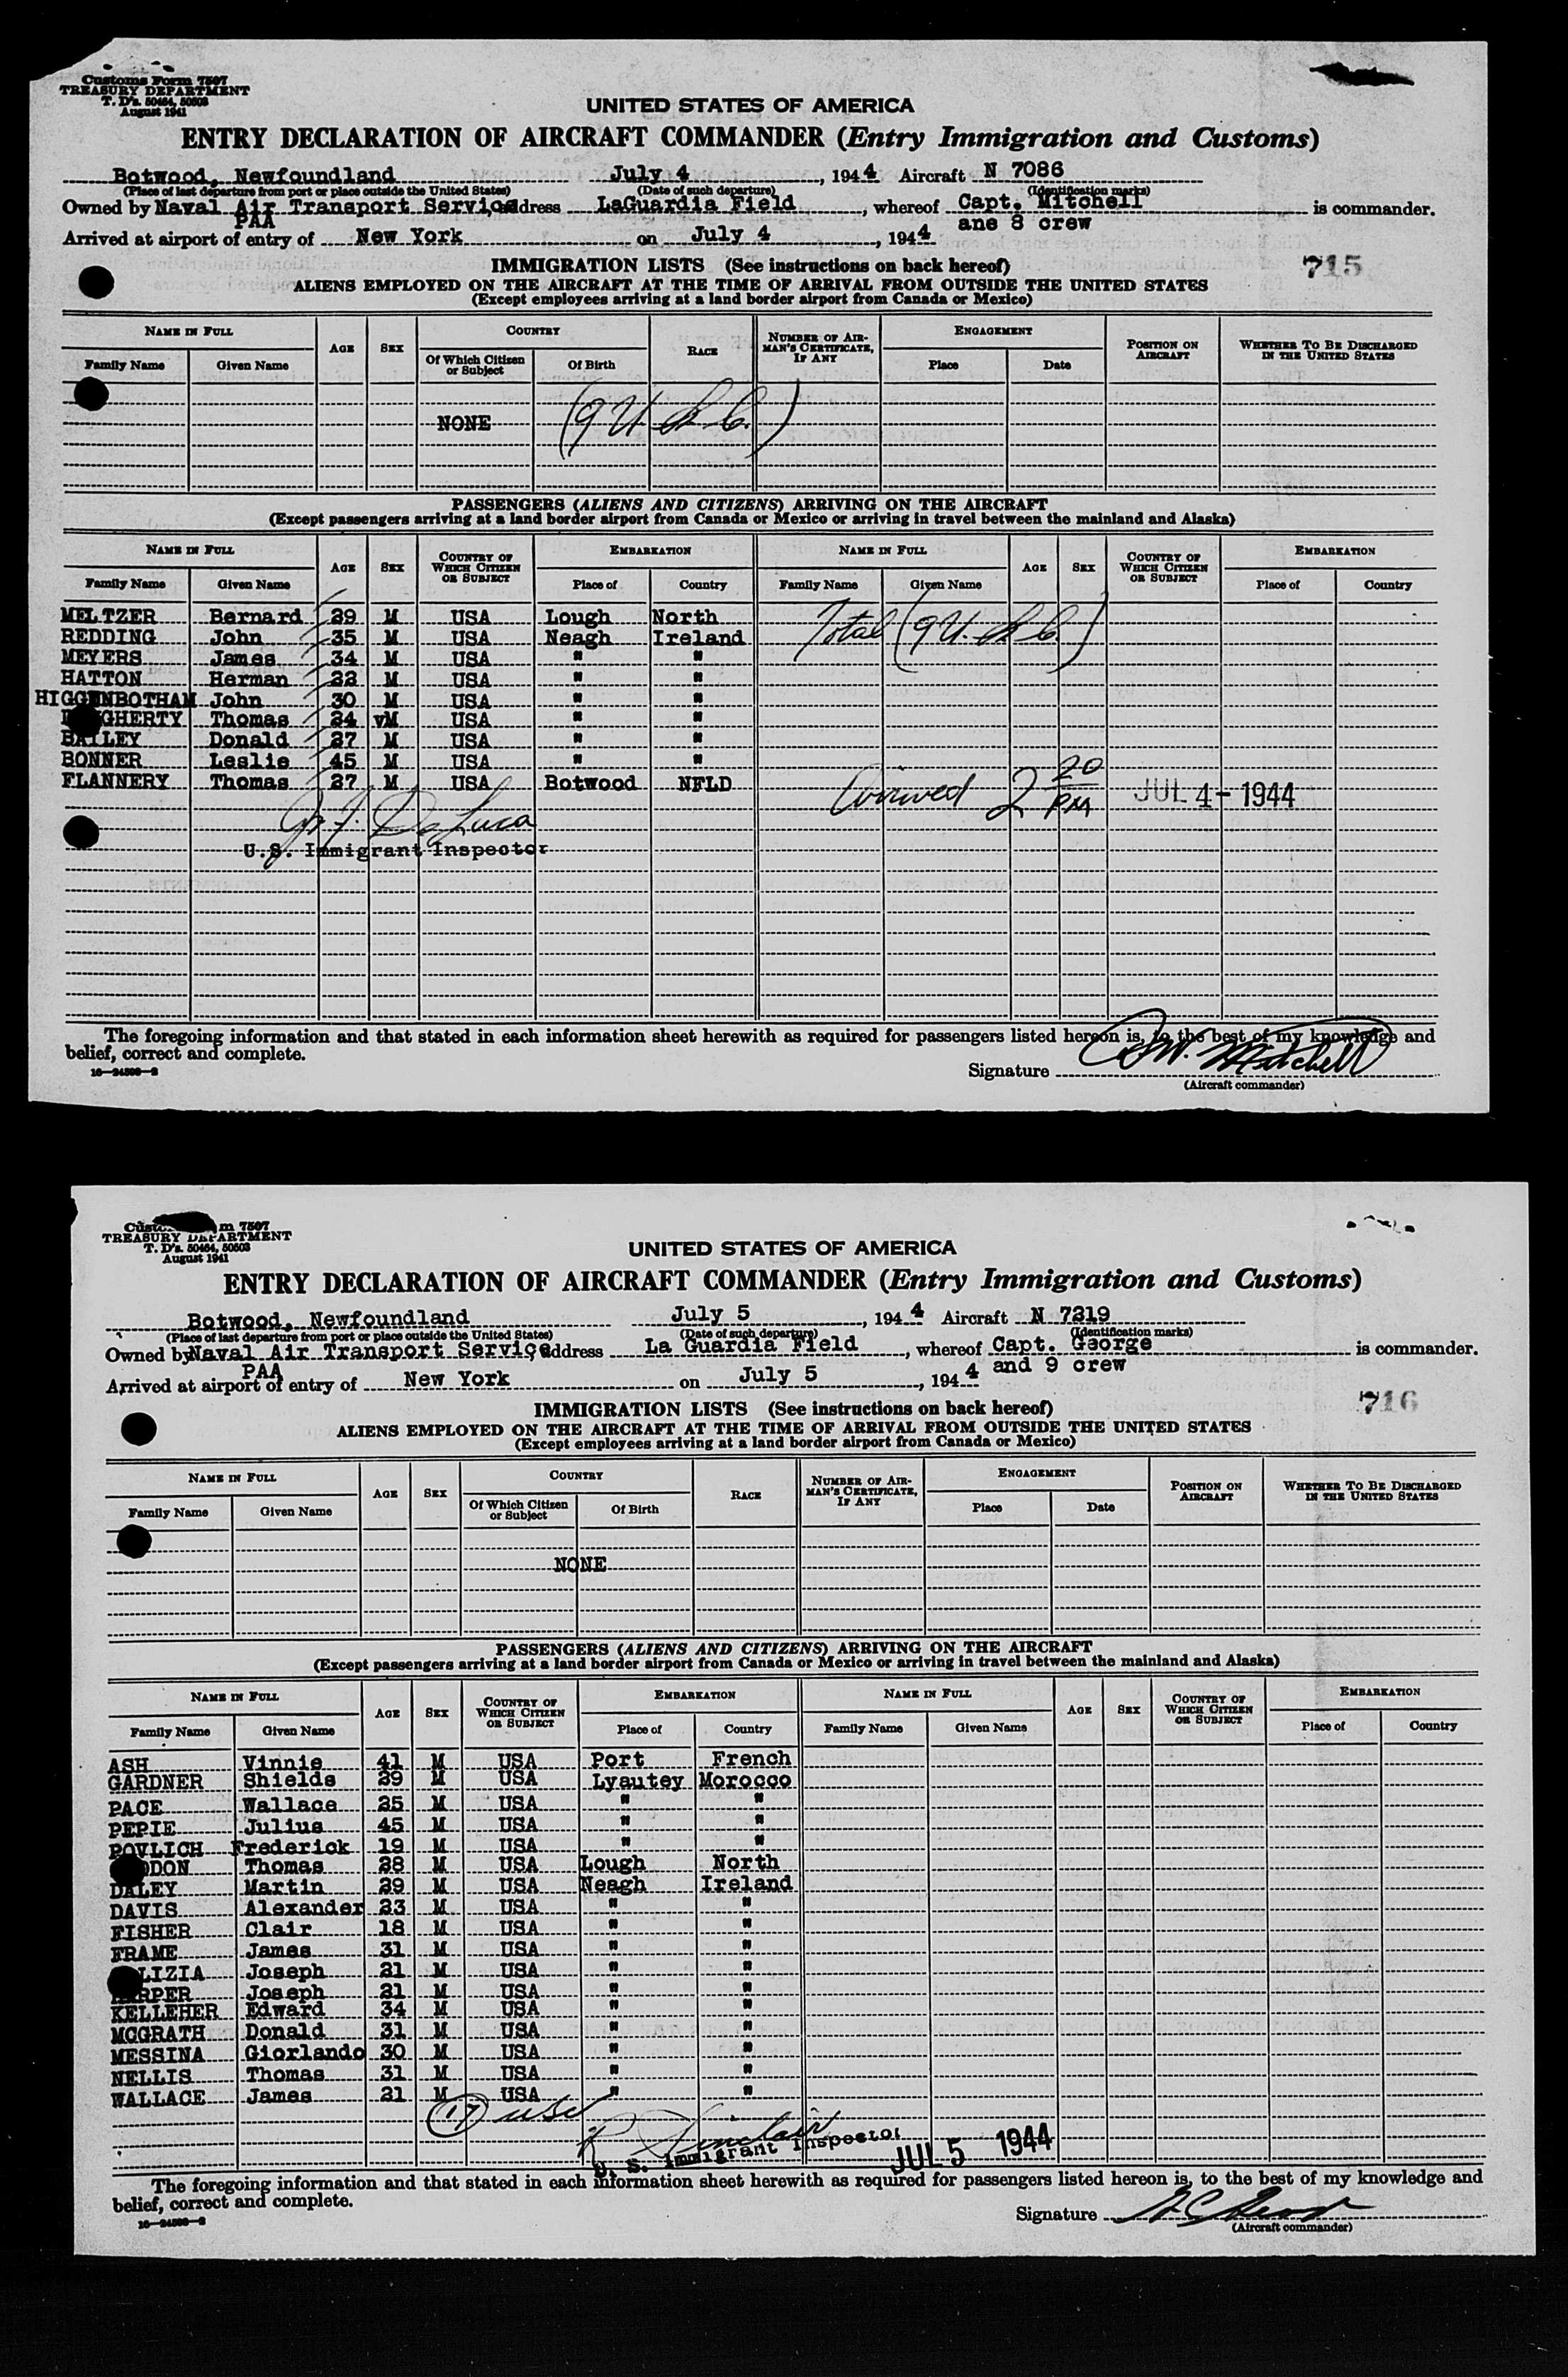 Customs Form 7507
TREASURY DEPARTMENT
T. D's. 50464, 50503
August 1941
UNITED STATES OF AMERICA
ENTRY DECLARATION OF AIRCRAFT COMMANDER (Entry Immigration and Customs)
Botwood, Newfoundland July 4, 1944 Aircraft N 7086
(Place of last departure from port or place outside the United States) (Date of such departure) (Identification marks)
Owned by Naval Air Transport Service address LaGuardia Field, whereof Capt. Mitchell is commander.
PAA ane 8 crew
Arrived at airport of entry of New York on July 4, 1944
IMMIGRATION LISTS (See instructions on back hereof) 715
ALIENS EMPLOYED ON THE AIRCRAFT AT THE TIME OF ARRIVAL FROM OUTSIDE THE UNITED STATES
(Except employees arriving at a land border airport from Canada or Mexico)
NAME IN FULL AGE SEX COUNTRY RACE NUMBER OF AIRMAN'S CERTIFICATE, IF ANY ENGAGEMENT POSITION ON AIRCRAFT WHETHER TO BE DISCHARGED IN THE UNITED STATES
Family Name Given Name Of Which Citizen or Subject Of Birth Place Date
NONE (9 U. S. C.)
PASSENGERS (ALIENS AND CITIZENS) ARRIVING ON THE AIRCRAFT
(Except passengers arriving at a land border airport from Canada or Mexico or arriving in travel between the mainland and Alaska)
NAME IN FULL AGE SEX COUNTRY OF WHICH CITIZEN OR SUBJECT EMBARKATION NAME IN FULL AGE SEX COUNTRY OF WHICH CITIZEN OR SUBJECT EMBARKATION
Family Name Given Name Place of Country Family Name Given Name Place of Country
MELTZER Bernard 29 M USA Lough North Total (9 U. S. C.)
REDDING John 35 M USA Neagh Ireland
MEYERS James 34 M USA " "
HATTON Herman 22 M USA " "
HIGGENBOTHAM John 30 M USA " "
GHERTY Thomas 24 vM USA " "
BAILEY Donald 27 M USA " "
BONNER Leslie 45 M USA " "
FLANNERY Thomas 27 M USA Botwood NFLD Arrived 2 20 PM JUL 4 - 1944
De Luca
U.S. Immigrant Inspector
The foregoing information and that stated in each information sheet herewith as required for passengers listed hereon is, to the best of my knowledge and
belief, correct and complete.
16—24598—2
Signature Mitchell
(Aircraft commander)
m 7507
TREASURY DEPARTMENT
T. D's. 50464, 50503
August 1941
UNITED STATES OF AMERICA
ENTRY DECLARATION OF AIRCRAFT COMMANDER (Entry Immigration and Customs)
Botwood, Newfoundland July 5, 1944 Aircraft N 7219
(Place of last departure from port or place outside the United States) (Date of such departure) (Identification marks)
Owned by Naval Air Transport Service, address La Guardia Field, whereof Capt. George is commander.
PAA and 9 crew
Arrived at airport of entry of New York on July 5, 1944
IMMIGRATION LISTS (See instructions on back hereof) 716
ALIENS EMPLOYED ON THE AIRCRAFT AT THE TIME OF ARRIVAL FROM OUTSIDE THE UNITED STATES
(Except employees arriving at a land border airport from Canada or Mexico)
NAME IN FULL AGE SEX COUNTRY RACE NUMBER OF AIRMAN'S CERTIFICATE, IF ANY ENGAGEMENT POSITION ON AIRCRAFT WHETHER TO BE DISCHARGED IN THE UNITED STATES
Family Name Given Name Of Which Citizen or Subject Of Birth Place Date
NONE
PASSENGERS (ALIENS AND CITIZENS) ARRIVING ON THE AIRCRAFT
(Except passengers arriving at a land border airport from Canada or Mexico or arriving in travel between the mainland and Alaska)
NAME IN FULL AGE SEX COUNTRY OF WHICH CITIZEN OR SUBJECT EMBARKATION NAME IN FULL AGE SEX COUNTRY OF WHICH CITIZEN OR SUBJECT EMBARKATION
Family Name Given Name Place of Country Family Name Given Name Place of Country
ASH Vinnie 41 M USA Port French
GARDNER Shields 29 M USA Lyautey Morocco
PACE Wallace 25 M USA " "
PEPIE Julius 45 M USA " "
POVLICH Frederick 19 M USA " "
DON Thomas 28 M USA Lough North
DALEY Martin 29 M USA Neagh Ireland
DAVIS Alexander 23 M USA " "
FISHER Clair 18 M USA " "
FRAME James 31 M USA " "
LIZIA Joseph 21 M USA " "
HARPER Joseph 21 M USA " "
KELLEHER Edward 34 M USA " "
MCGRATH Donald 31 M USA " "
MESSINA Giorlando 30 M USA " "
NELLIS Thomas 31 M USA " "
WALLACE James 21 M USA " "
17 USC
R Sinclair
U. S. Immigrant Inspector JUL 5 1944
The foregoing information and that stated in each information sheet herewith as required for passengers listed hereon is, to the best of my knowledge and
belief, correct and complete.
16—24598—2
Signature
(Aircraft commander)